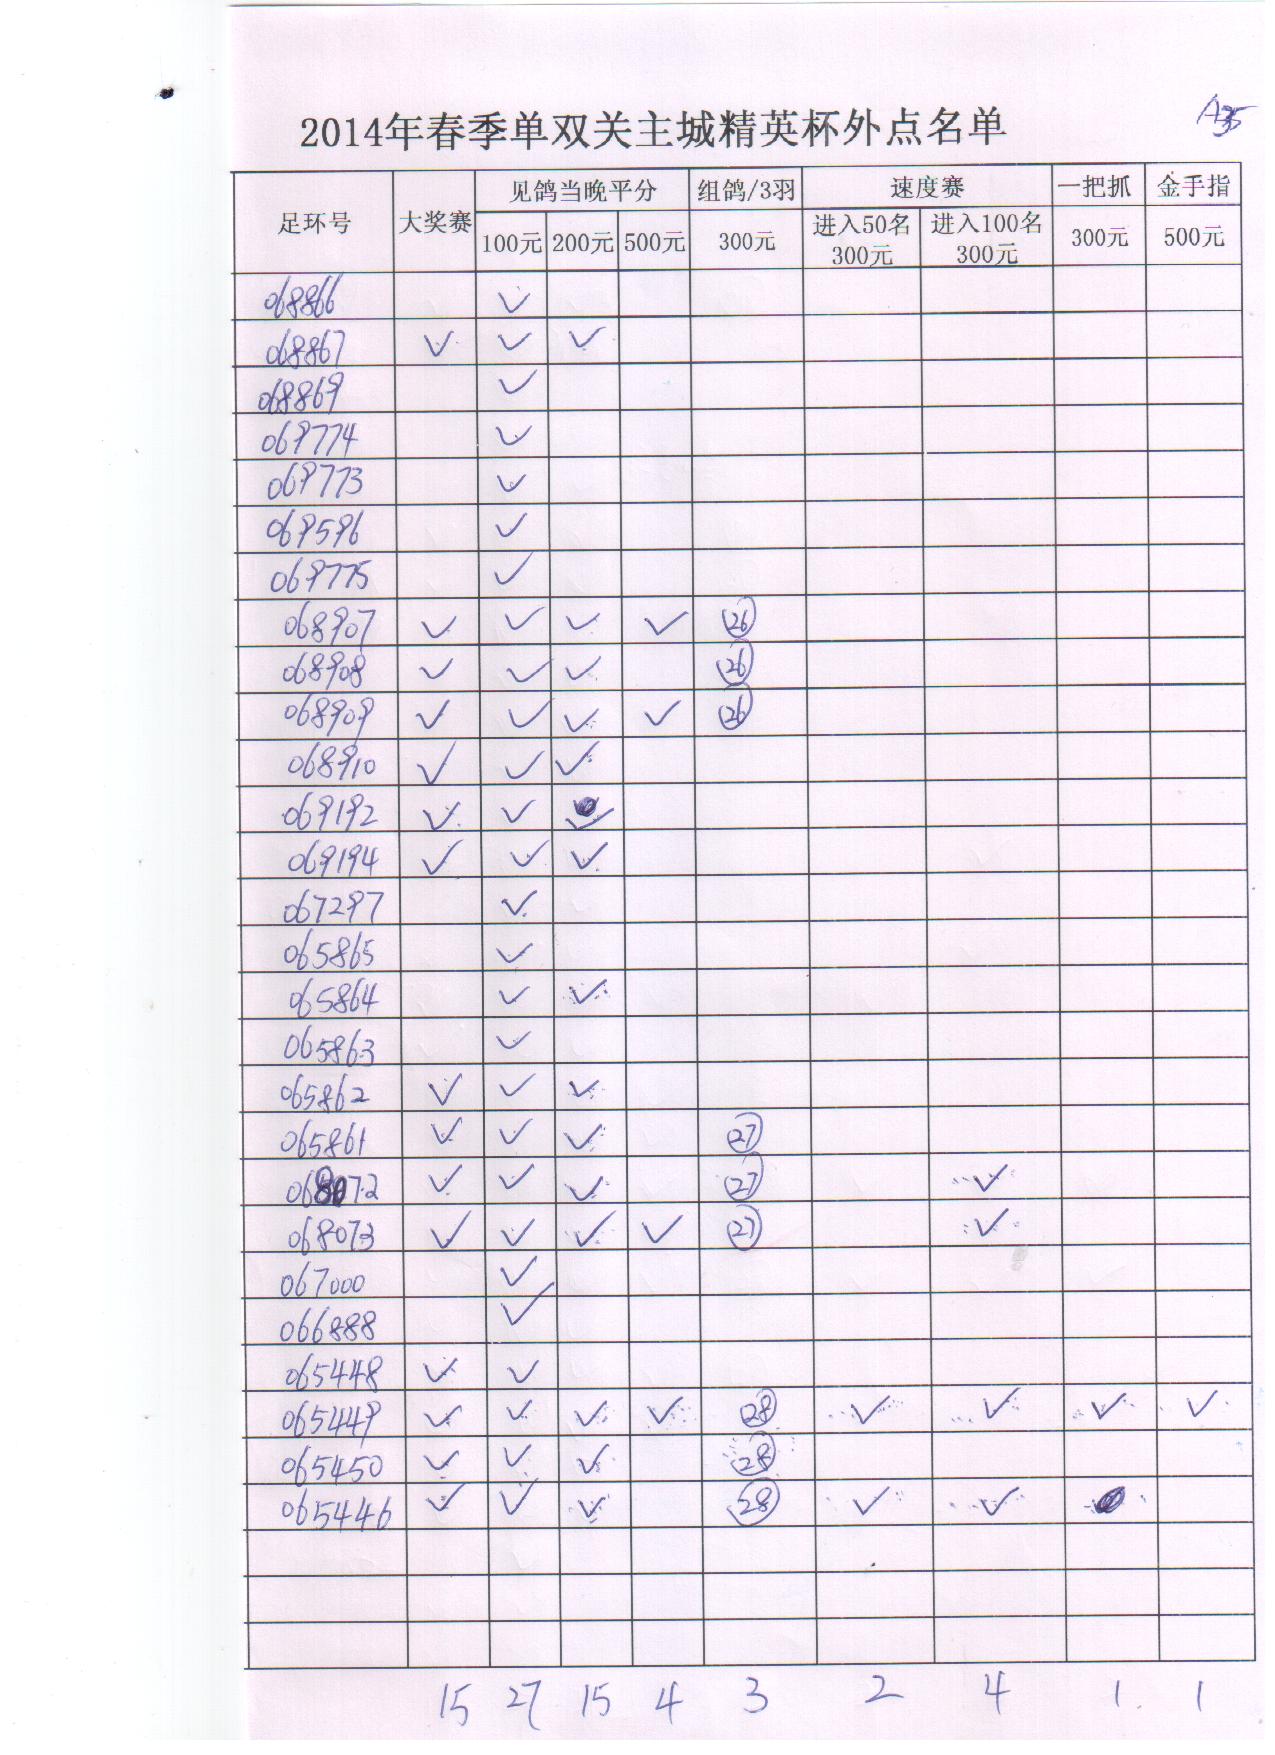 A35
2014年春季单双关主城精英杯外点名单
足环号 大奖赛 见鸽当晚平分 组鸽/3羽 速度赛 一把抓 金手指
100元 200元 500元 300元 进入50名 300元 进入100名 300元 300元 500元
068866 ✓
068867 ✓ ✓ ✓
068869 ✓
069774 ✓
069773 ✓
069596 ✓
069775 ✓
068907 ✓ ✓ ✓ ✓ 26
068908 ✓ ✓ ✓ 26
068909 ✓ ✓ ✓ ✓ 26
068910 ✓ ✓ ✓
069192 ✓ ✓ ✓
069194 ✓ ✓ ✓
067297 ✓
065865 ✓
065864 ✓ ✓
065863 ✓
065862 ✓ ✓ ✓
065861 ✓ ✓ ✓ 27
068072 ✓ ✓ ✓ 27 ✓
068073 ✓ ✓ ✓ ✓ 27 ✓
067000 ✓
066888 ✓
065448 ✓ ✓
065449 ✓ ✓ ✓ ✓ 28 ✓ ✓ ✓ ✓
065450 ✓ ✓ ✓ 28
065446 ✓ ✓ ✓ 28 ✓ ✓
15 27 15 4 3 2 4 1 1